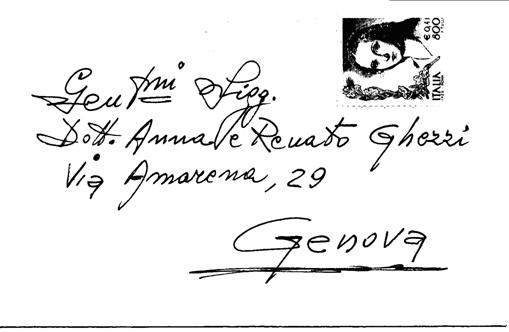 Gen.mi Sigg.
Dott. Anna e Renato Ghezzi
Via Amarena, 29
Genova
ITALIA
€ 0,41
800